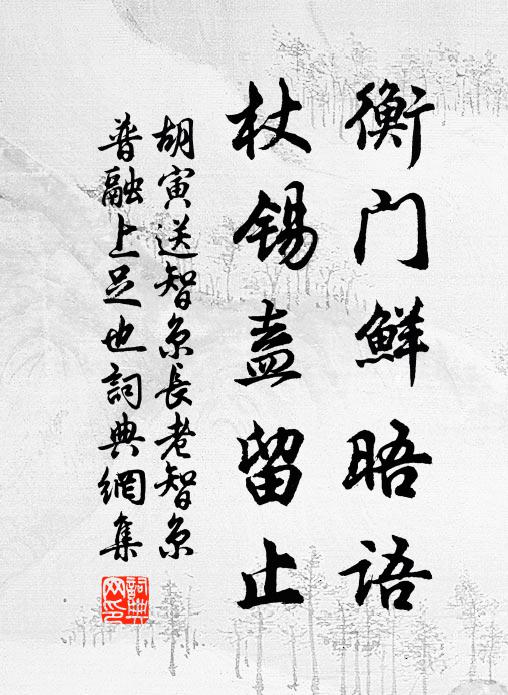 衡门鲜晤语
杖锡盍留止
胡寅送智京长老智京
普融上足也词典网集